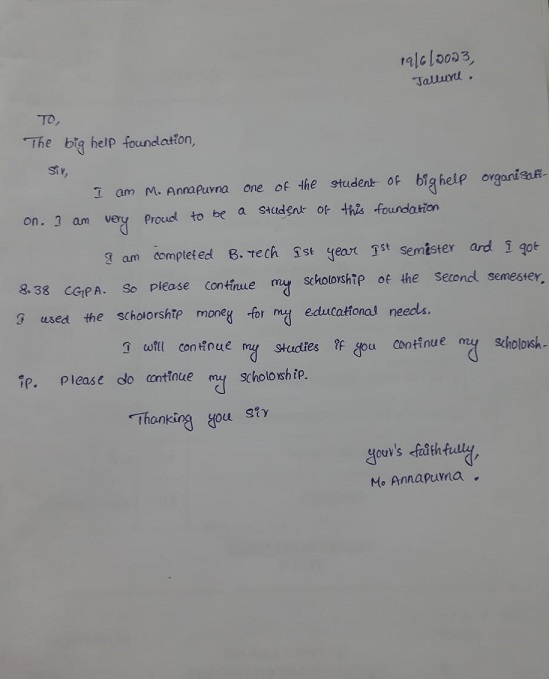 19/6/2023,
Jalluru.
TO,
The big help foundation,
Sir,
I am M. Annapurna one of the student of bighelp organisati-
on. I am very proud to be a student of this foundation
I am completed B.Tech Ist year Ist semister and I got
8.38 CGPA. So please continue my scholorship of the second semester.
I used the scholorship money for my educational needs.
I will continue my studies if you continue my scholorsh-
ip. please do continue my scholorship.
Thanking you sir
your's faithfully,
M. Annapurna.